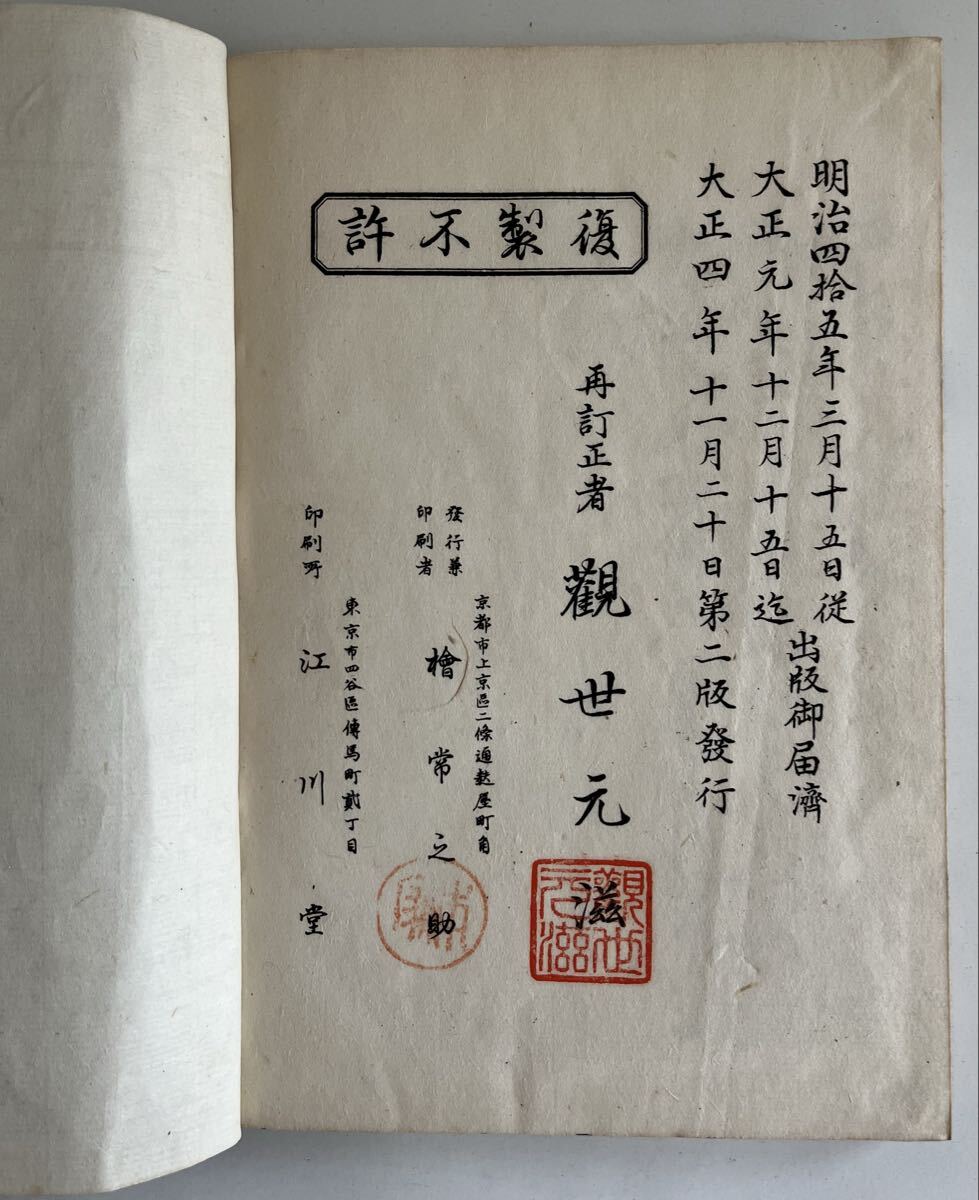 明治四拾五年三月十五日従
大正元年十二月十五日迄
出版御届濟
大正四年十一月二十日第二版發行
復製不許
再訂正者 觀世元滋
觀世元滋
發行兼印刷者
京都市上京區二條通麩屋町角
檜常之助
印刷所
東京市四谷區傳馬町貳丁目
江川堂